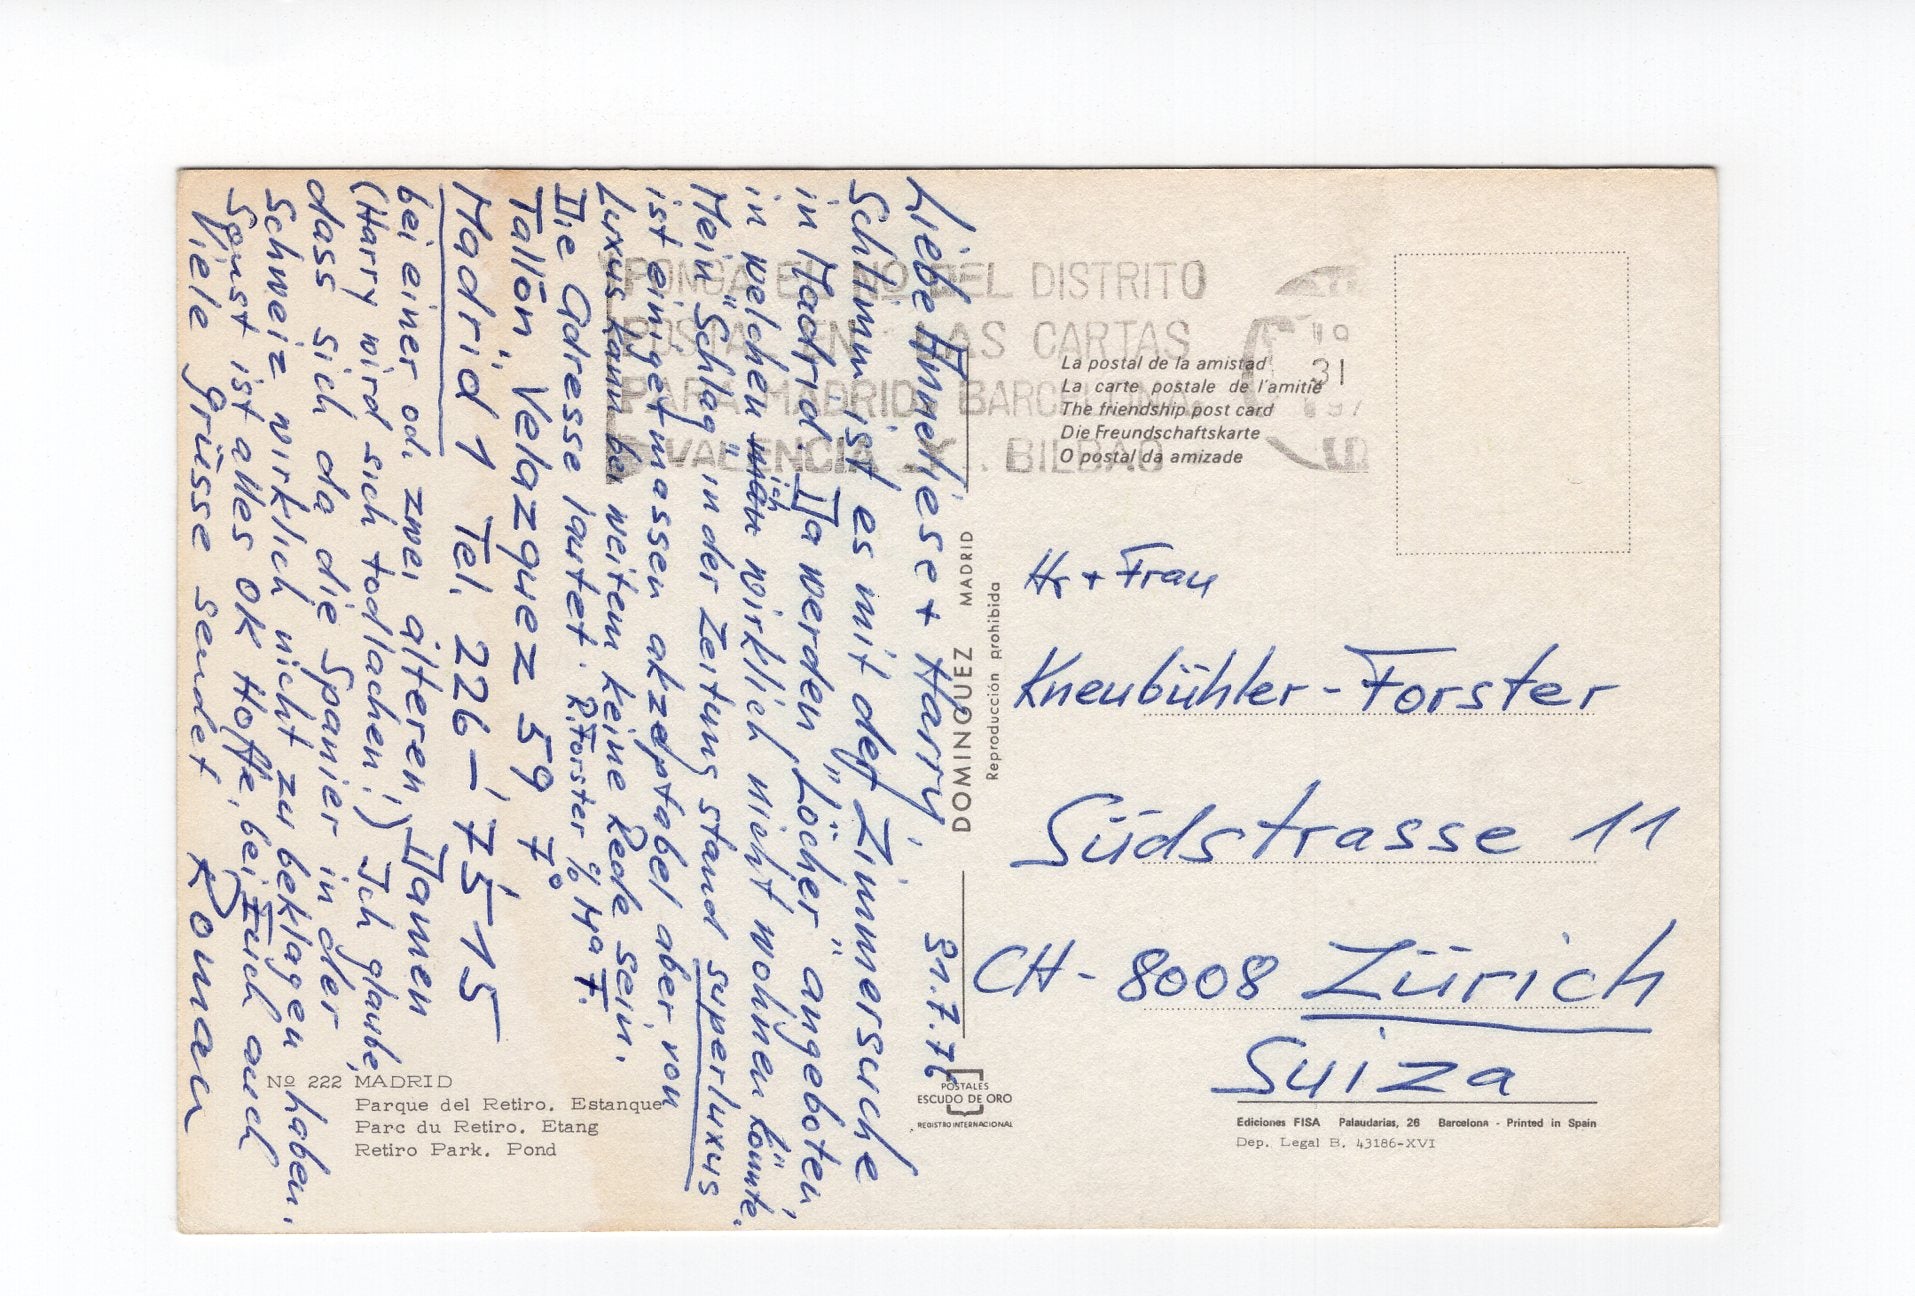 Liebe Anneliese + Harry, 31.7.76
Schlimm ist es mit der Zimmersuche
in Madrid. Da werden "Löcher" angeboten,
in welchen ich wirklich nicht wohnen könnte.
Mein "Schlag" in der Zeitung stand superluxus
ist einigermassen akzeptabel aber von
Luxus kann bei weitem keine Rede sein.
Die Adresse lautet. R. Forster c/o Mª F.
Tallón, Velazquez 59 7º
Madrid 1 Tel. 226-75-15
bei einer od. zwei älteren, Damen
(Harry wird sich todlachen!) Ich glaube,
dass sich da die Spanier in der
Schweiz wirklich nicht zu beklagen haben.
Sonst ist alles OK Hoffe, bei Euch auch
Viele Grüsse sendet Roman
PONGA EL Nº DEL DISTRITO
POSTAL EN LAS CARTAS
PARA MADRID, BARCELONA,
VALENCIA Y BILBAO
19
31
La postal de la amistad
La carte postale de l'amitié
The friendship post card
Die Freundschaftskarte
O postal da amizade
DOMINGUEZ MADRID
Reproducción prohibida
Hr + Frau
Kneubühler-Forster
Südstrasse 11
CH-8008 Zürich
Suiza
Nº 222 MADRID
Parque del Retiro. Estanque
Parc du Retiro. Etang
Retiro Park. Pond
POSTALES
ESCUDO DE ORO
REGISTRO INTERNACIONAL
Ediciones FISA Palaudarias, 26 Barcelona - Printed in Spain
Dep. Legal B. 43186-XVI